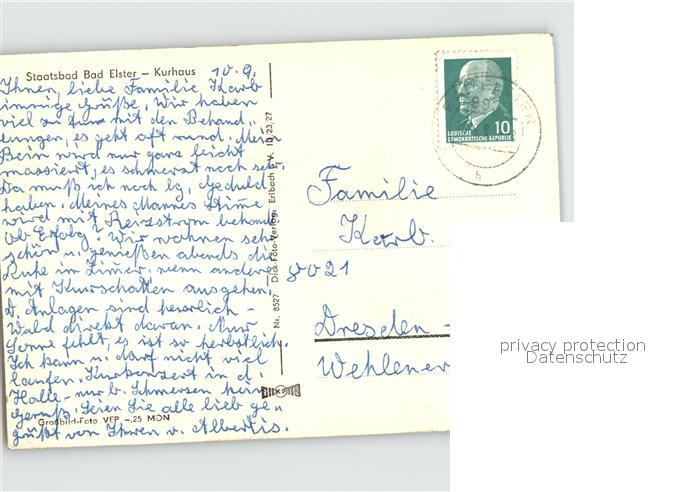 Staatsbad Bad Elster – Kurhaus
10.9.
Ihnen, liebe Familie Karb
innige Grüße. Wir haben
viel zu tun mit den Behand,
lungen, es geht oft rund. Mein
Bein wird nur ganz leicht
massiert, es schmerzt noch sehr.
Da muß ich noch lg. Geduld
haben. Meines Mannes Stimme
wird mit Reizstrom behand.
Ob Erfolg? Wir wohnen sehr
schön u. genießen abends die
Ruhe im Zimmer, wenn andere
mit Kurschatten ausgehen.
D. Anlagen sind herrlich –
Wald direkt daran. Nur
Sonne fehlt, es ist so herbstlich.
Ich kann u. darf nicht viel
laufen. Kurkonzert in d.
Halle – nur b. Schmerzen kein
Genuß. Seien Sie alle lieb ge,
grüßt von Ihren v. Albertis.
Großbild-Foto VEP –,25 MDN
Nr. 8527 Dick-Foto-Verlag, Erlbach i. V. 10 23 27
DEUTSCHE
DEMOKRATISCHE REPUBLIK
10
h
Familie
Karb.
8021
Dresden –
Wehlener
privacy protection
Datenschutz